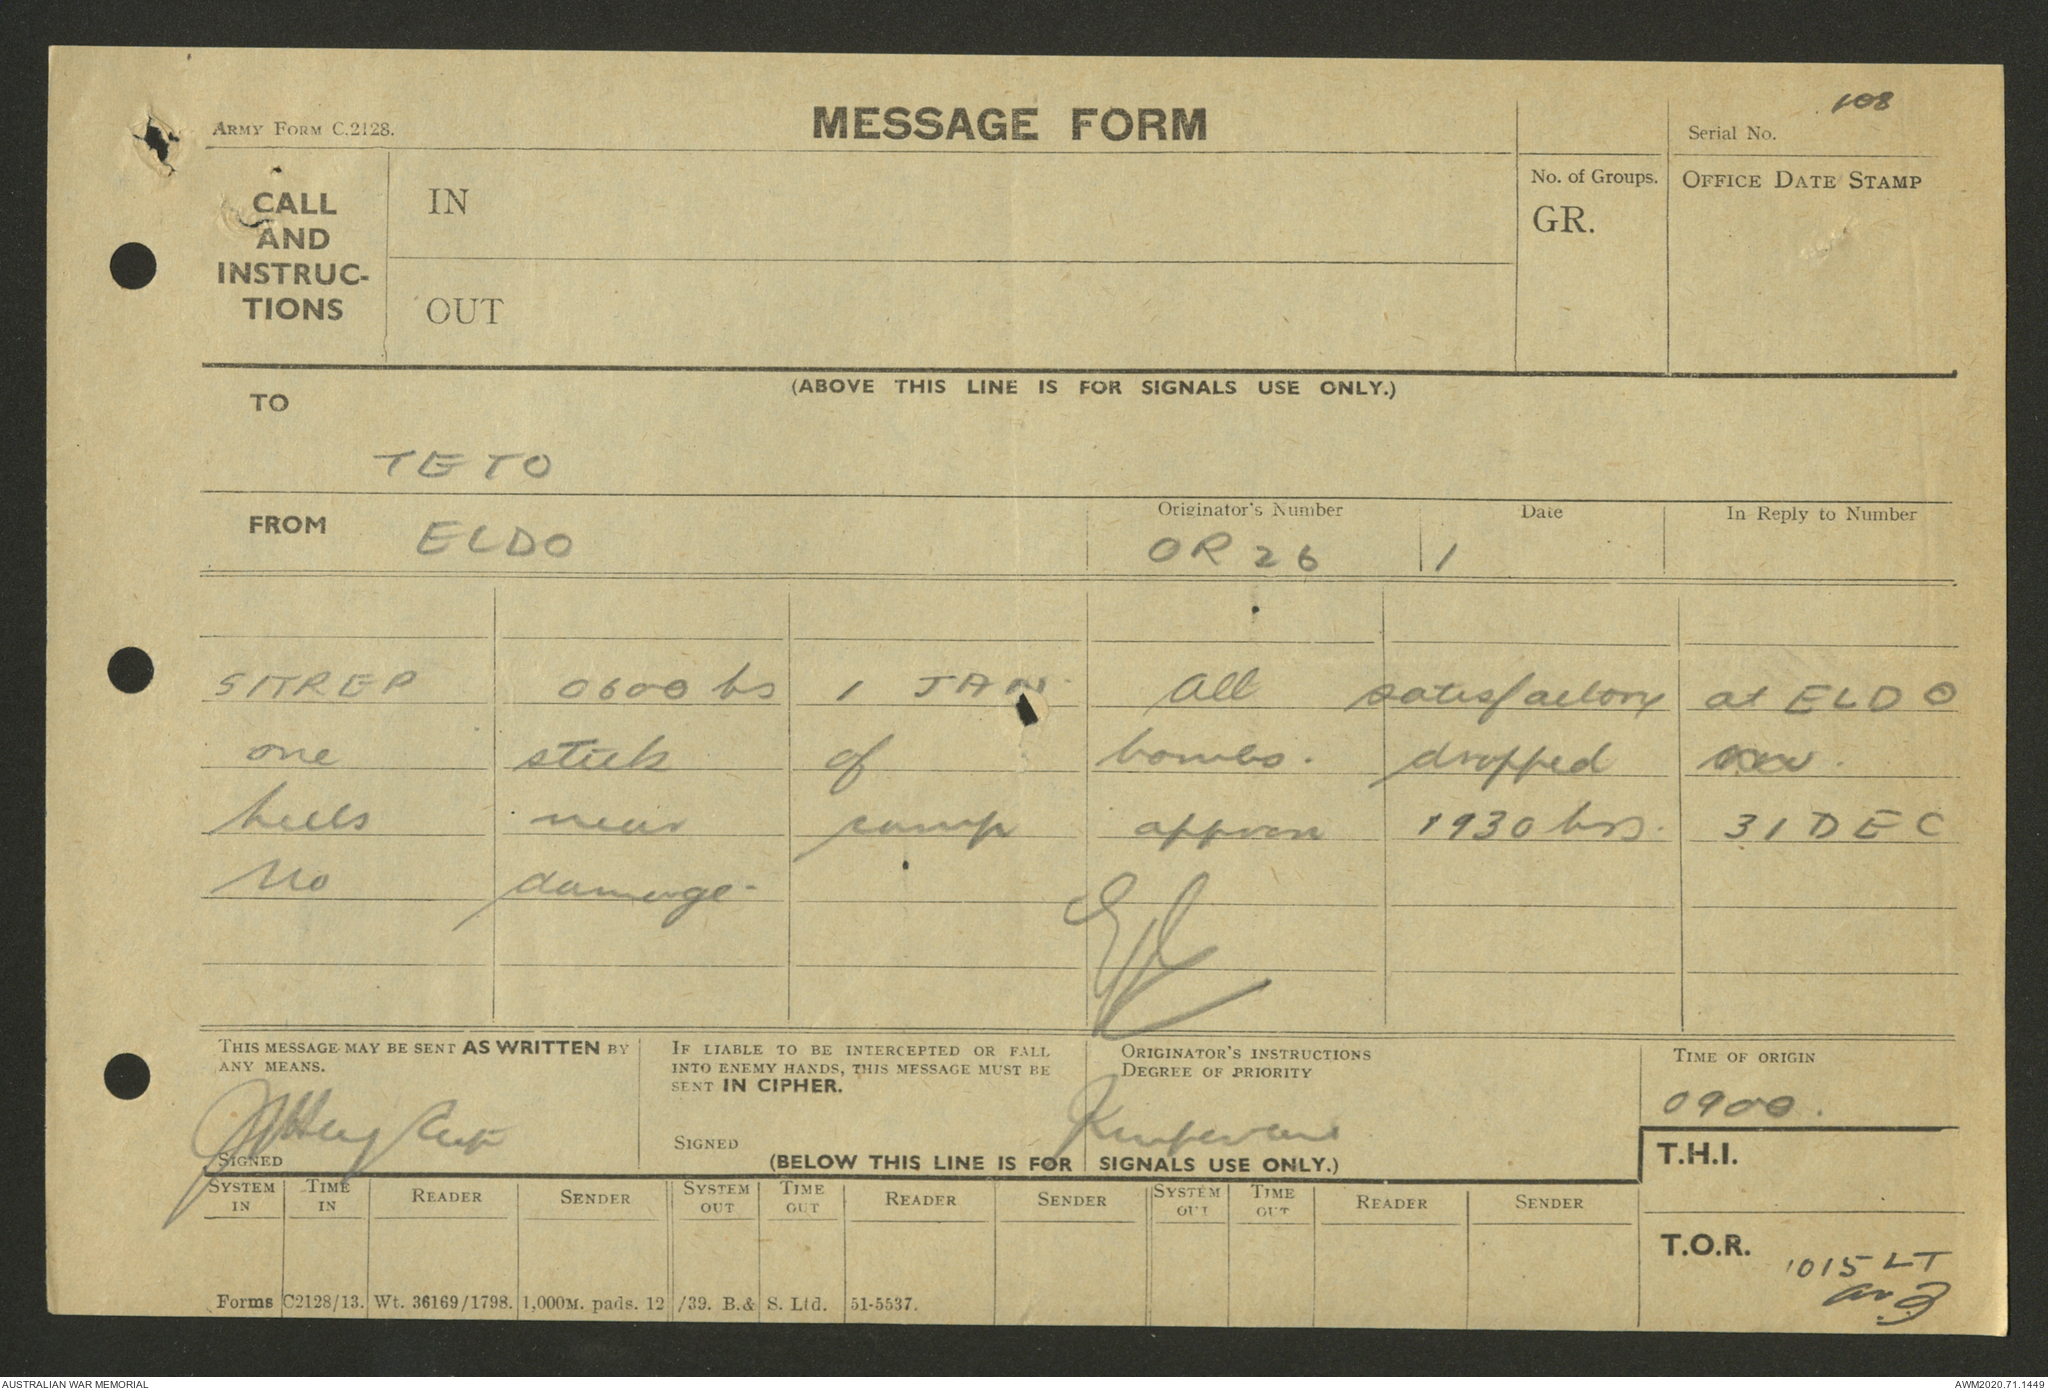 108
ARMY FORM C.2128.
MESSAGE FORM
Serial No.
CALL
AND
INSTRUC-
TIONS
IN
OUT
No. of Groups.
GR.
OFFICE DATE STAMP
(ABOVE THIS LINE IS FOR SIGNALS USE ONLY.)
TO
TETO
FROM
ELDO
Originator's Number
OR 26
Date
1
In Reply to Number
SITREP 0600 hs 1 JAN All satisfactory at ELDO
one stick of bombs. dropped
hills near camp approx 1930 hrs. 31 DEC
No damage.
THIS MESSAGE MAY BE SENT AS WRITTEN BY
ANY MEANS.
SIGNED
IF LIABLE TO BE INTERCEPTED OR FALL
INTO ENEMY HANDS, THIS MESSAGE MUST BE
SENT IN CIPHER.
SIGNED
ORIGINATOR'S INSTRUCTIONS
DEGREE OF PRIORITY
TIME OF ORIGIN
0900.
T.H.I.
(BELOW THIS LINE IS FOR SIGNALS USE ONLY.)
SYSTEM IN TIME IN READER SENDER SYSTEM OUT TIME OUT READER SENDER SYSTEM OUT TIME OUT READER SENDER
T.O.R.
1015 LT
Forms C2128/13. Wt. 36169/1798. 1,000M. pads. 12/39. B.& S. Ltd. 51-5537.
AUSTRALIAN WAR MEMORIAL
AWM2020.71.1449